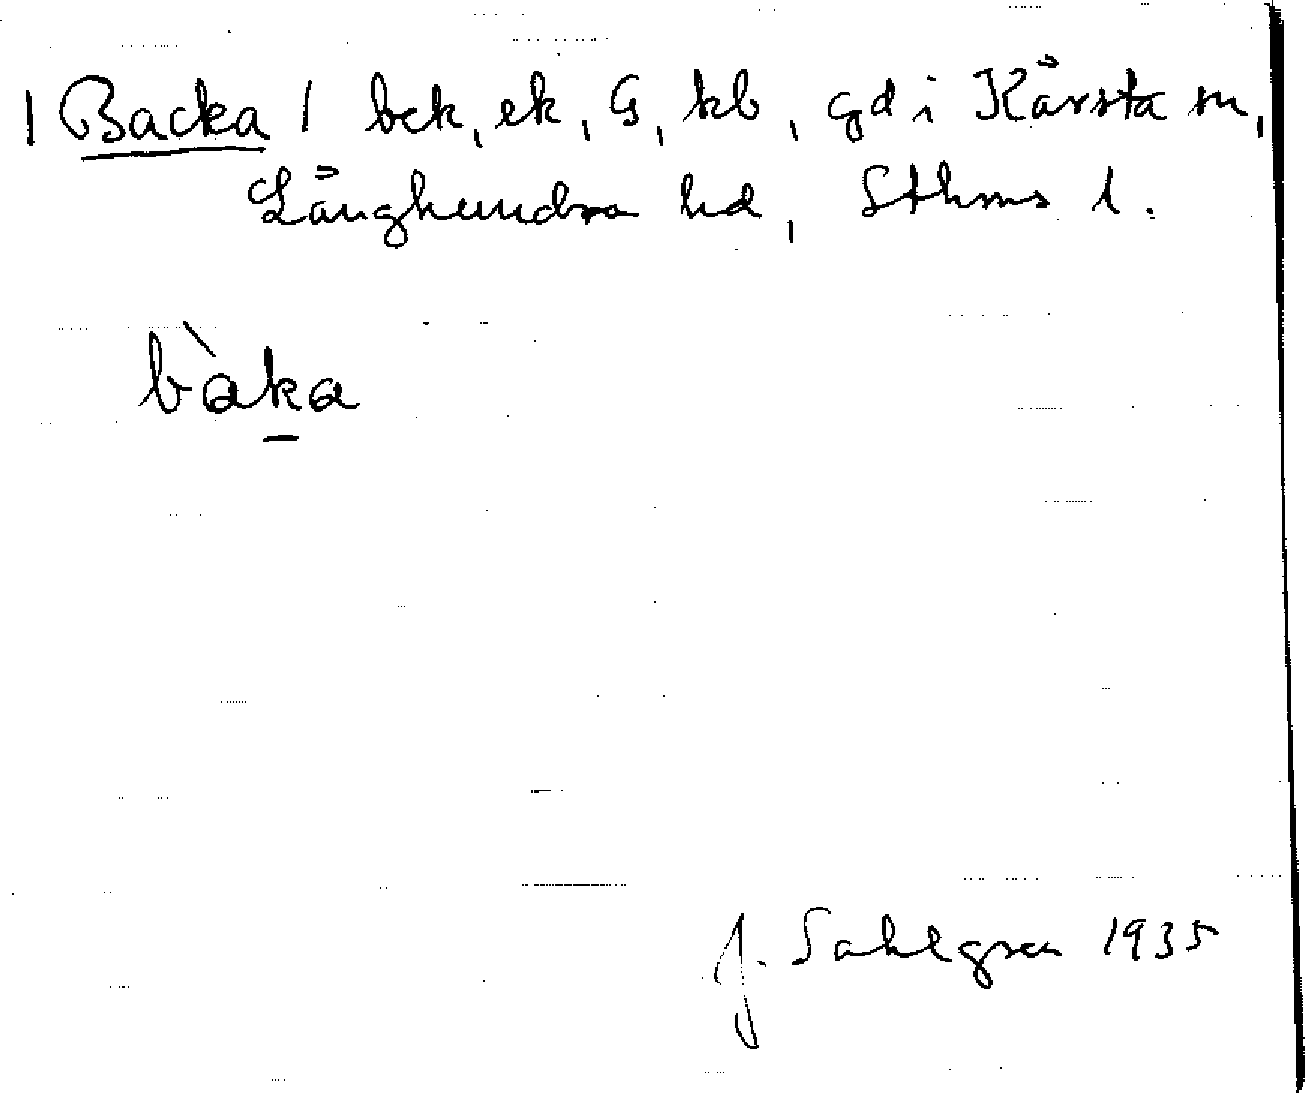 | Backa | bek, ek, G, kb, gd i Kårsta sn,
Långhundra hd, Sthms l.
bàka
J. Sahlgren 1935